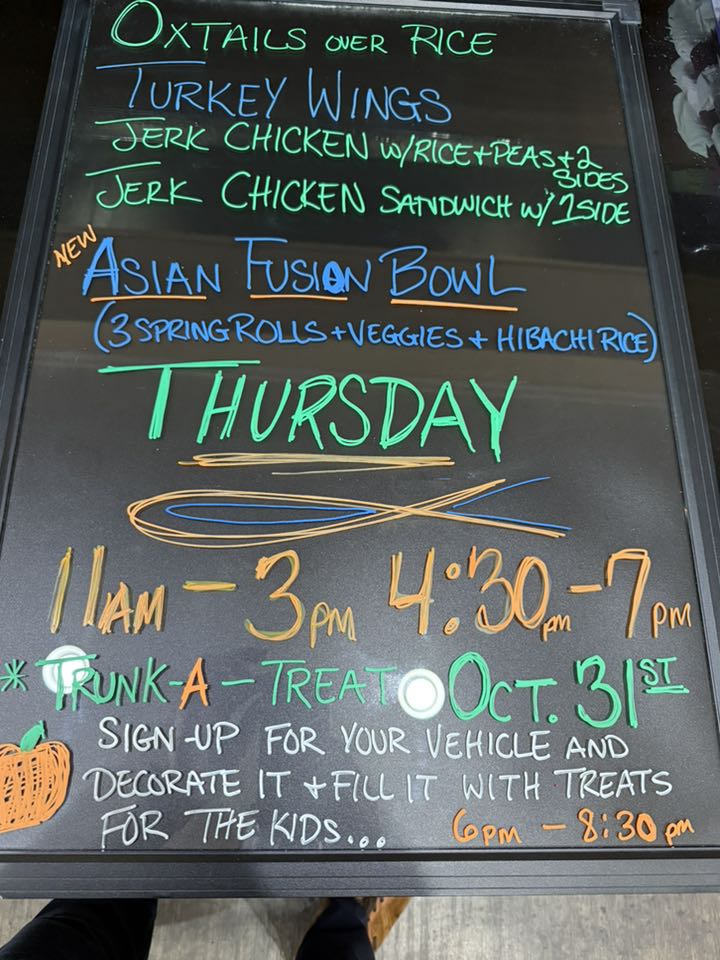 OXTAILS OVER RICE
TURKEY WINGS
JERK CHICKEN W/RICE+PEAS+2
SIDES
JERK CHICKEN SANDWICH W/ 1 SIDE
NEW
ASIAN FUSION BOWL
(3 SPRING ROLLS + VEGGIES + HIBACHI RICE)
THURSDAY
11AM - 3PM 4:30PM - 7PM
* TRUNK-A-TREAT OCT. 31ST
SIGN-UP FOR YOUR VEHICLE AND
DECORATE IT + FILL IT WITH TREATS
FOR THE KIDS... 6PM - 8:30PM